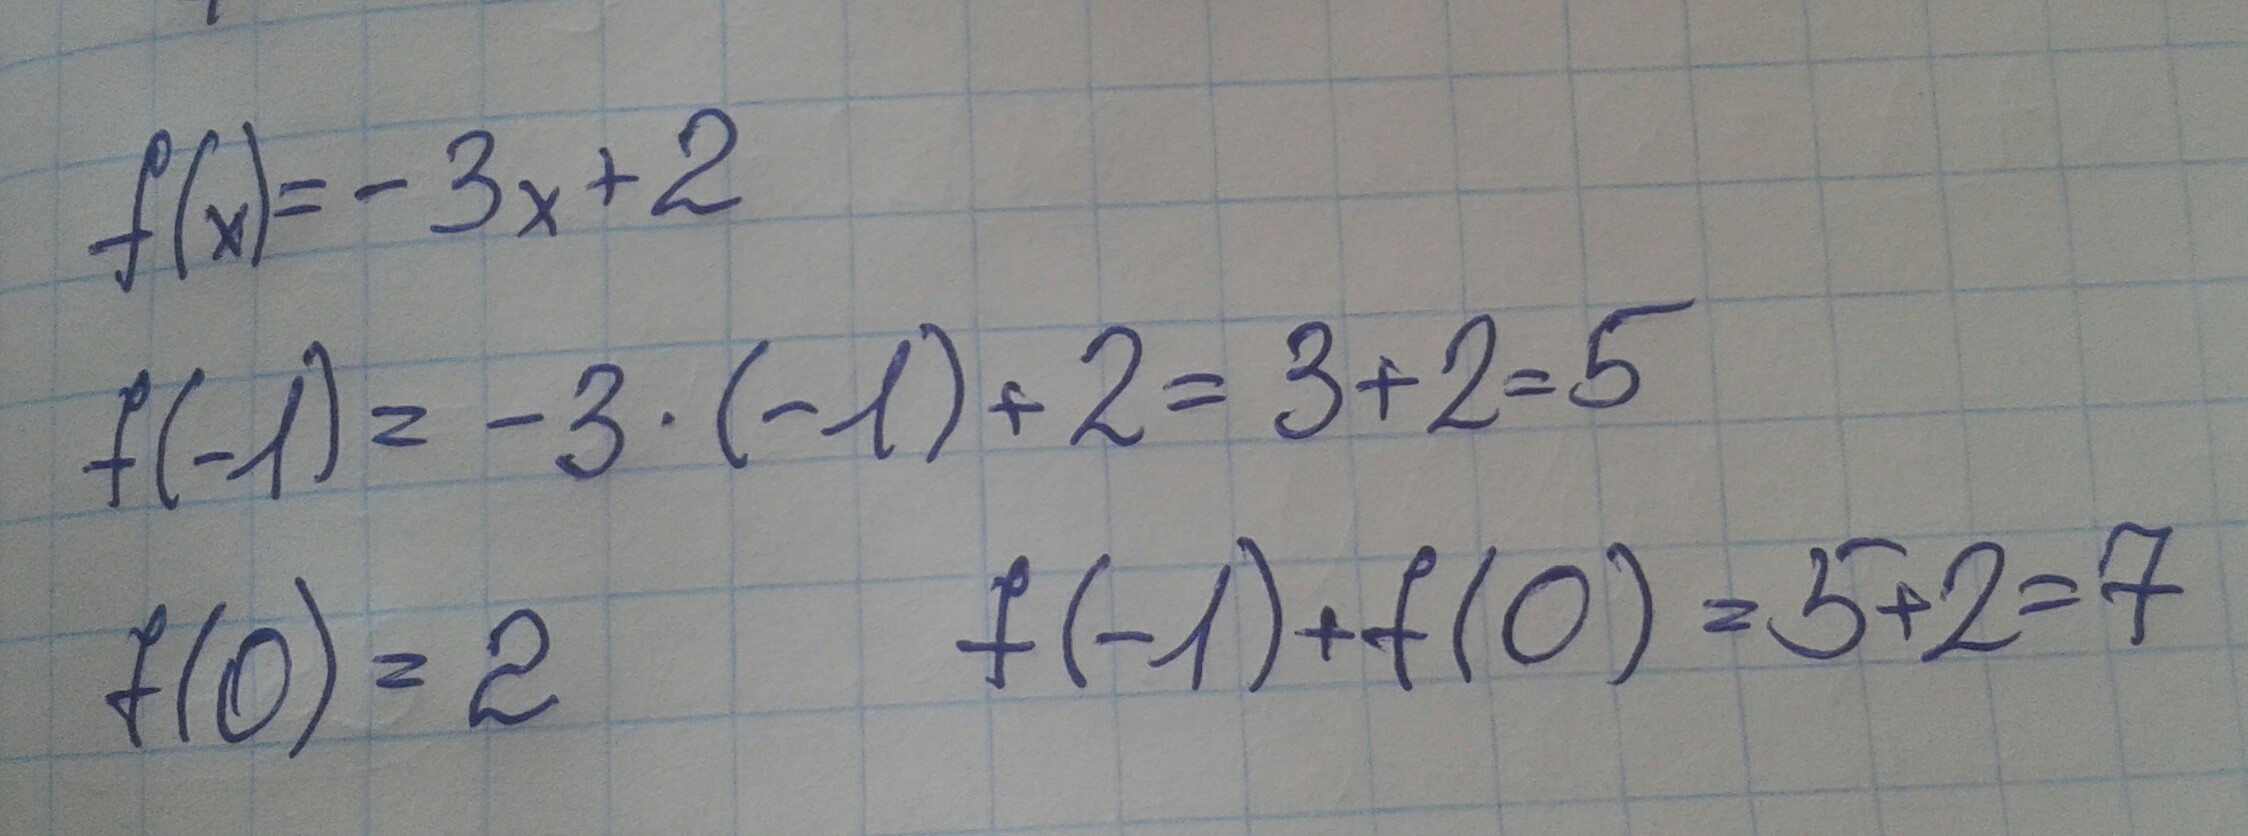 f(x)=-3x+2
f(-1)= -3·(-1)+2= 3+2=5
f(0)=2 f(-1)+f(0)=5+2=7